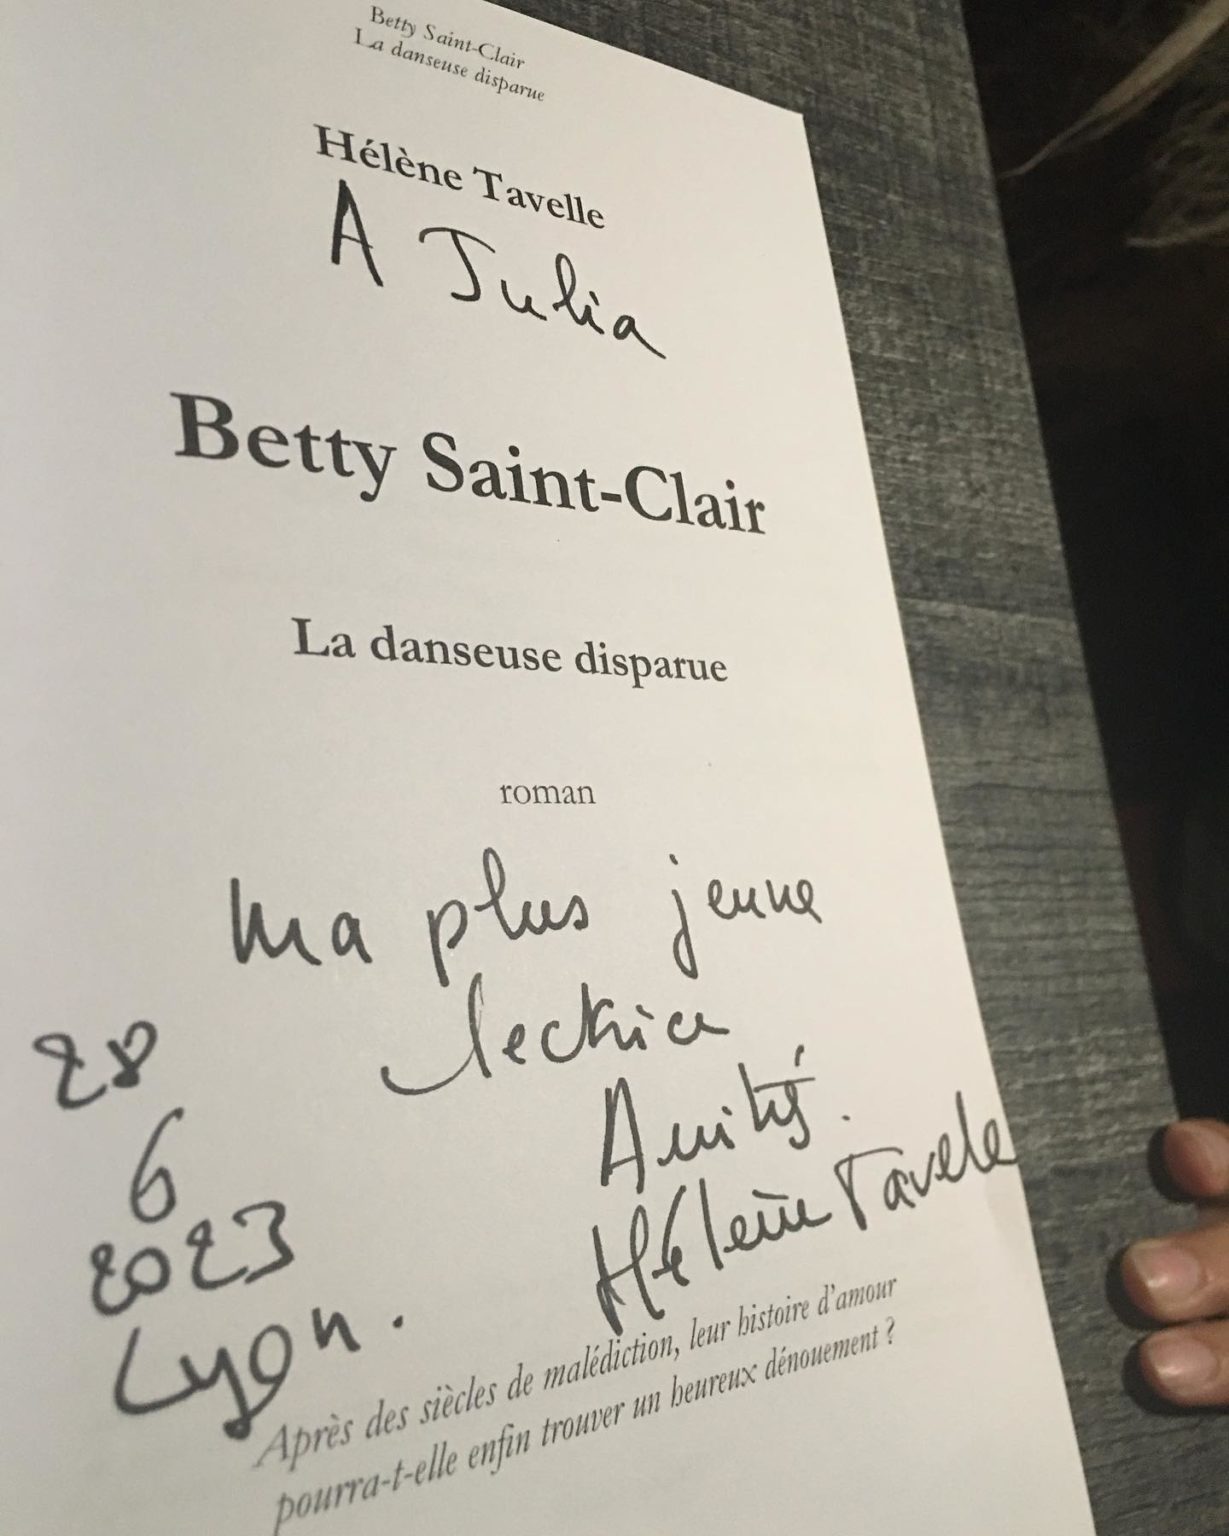 Betty Saint-Clair
La danseuse disparue
Hélène Tavelle
A Julia
Betty Saint-Clair
La danseuse disparue
roman
ma plus jeune
lectrice
Amitié.
Hélène Tavelle
28
6
2023
Lyon.
Après des siècles de malédiction, leur histoire d'amour
pourra-t-elle enfin trouver un heureux dénouement ?